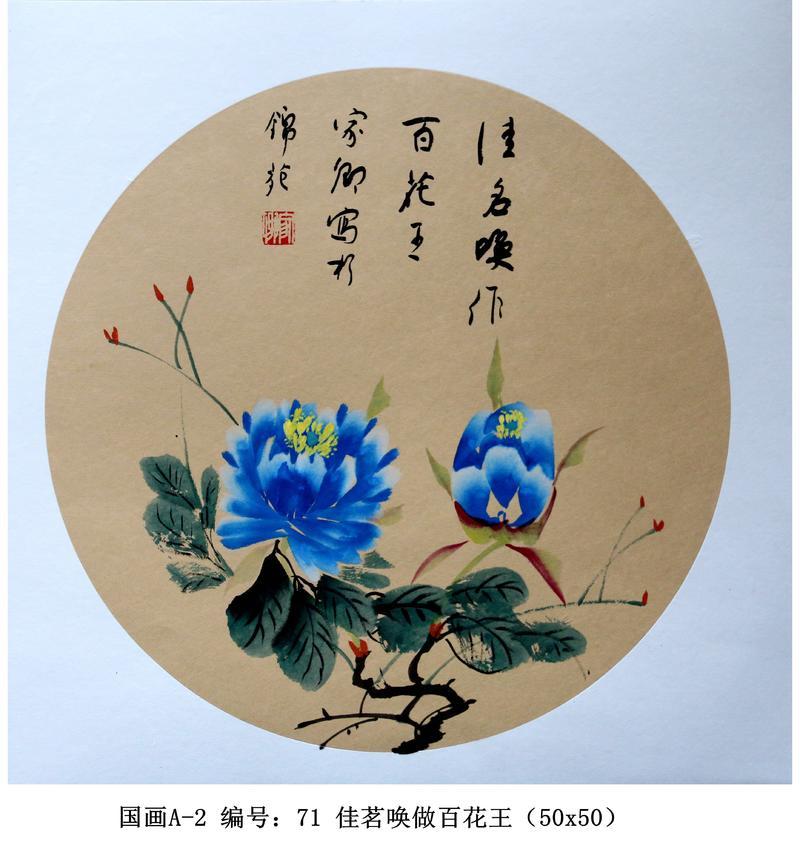 佳名唤作
百花王
家卿写於
锦苑
国画A-2 编号：71 佳茗唤做百花王（50x50）